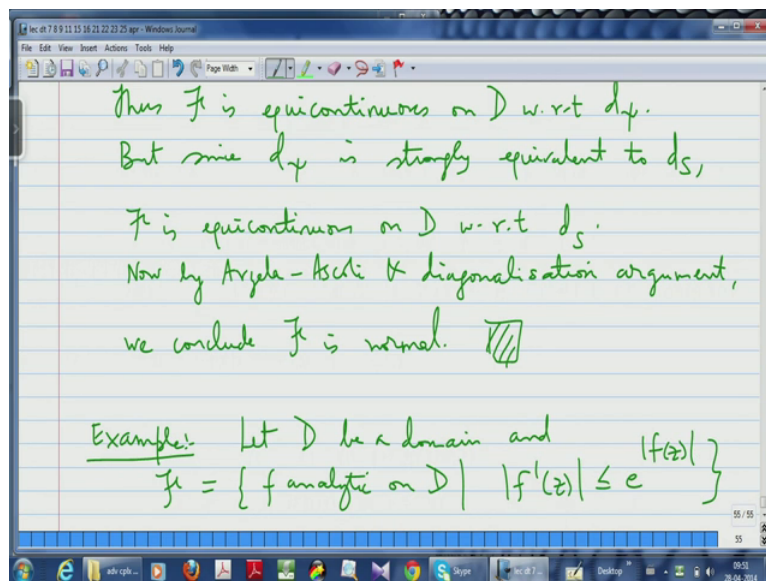 lec dt 7 8 9 11 15 16 21 22 23 25 apr - Windows Journal
File Edit View Insert Actions Tools Help
Page Width
Thus ℱ is equicontinuous on D w.r.t d_ψ.
But since d_ψ is strongly equivalent to d_S,
ℱ is equicontinuous on D w.r.t d_S.
Now by Arzela-Ascoli & diagonalisation argument,
we conclude ℱ is normal.
Example:- Let D be a domain and
ℱ = { f analytic on D | |f'(z)| ≤ e^|f(z)| }
55 / 55
55
adv cplx ... Skype lec dt 7 ... Desktop 09:51
28-04-2014